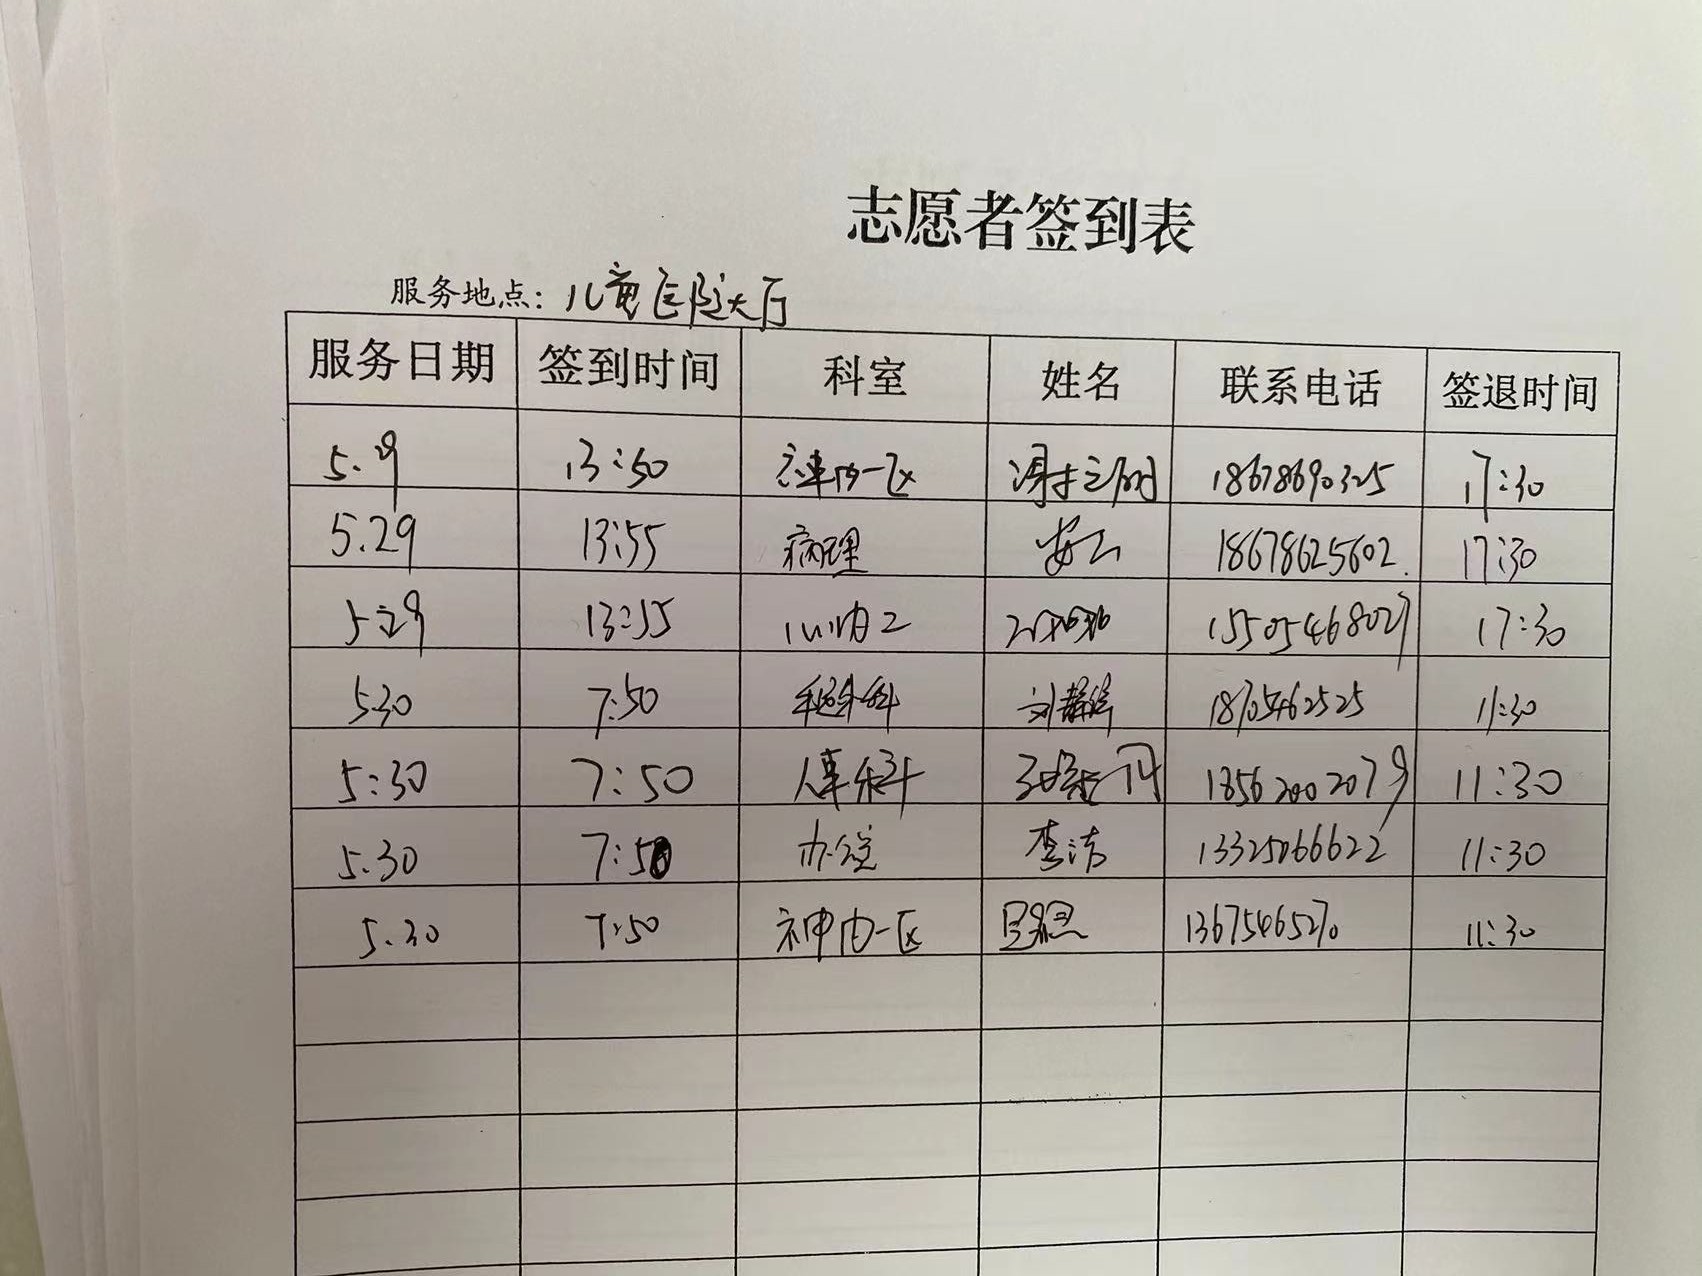 志愿者签到表
服务地点：儿童医院大厅
服务日期 签到时间 科室 姓名 联系电话 签退时间
5.29 13:50 神内一区 18678690325 17:30
5.29 13:55 病理 18678625602. 17:30
5.29 13:55 心内2 15505468027 17:30
5.30 7:50 刘 18705462525 11:30
5:30 7:50 人事科 18562002079 11:30
5.30 7:50 办公室 李洁 13325066622 11:30
5.30 7:50 神内一区 13675465270 11:30